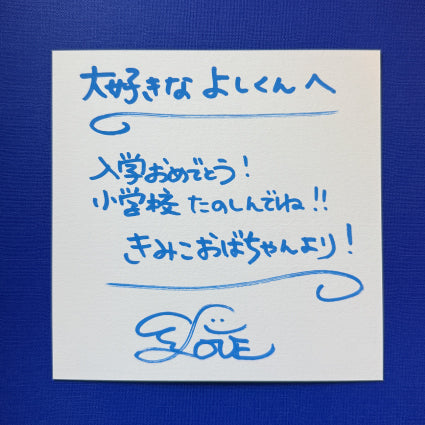 大好きな よしくんへ
入学おめでとう!
小学校 たのしんでね!!
きみこおばちゃんより!
LOVE